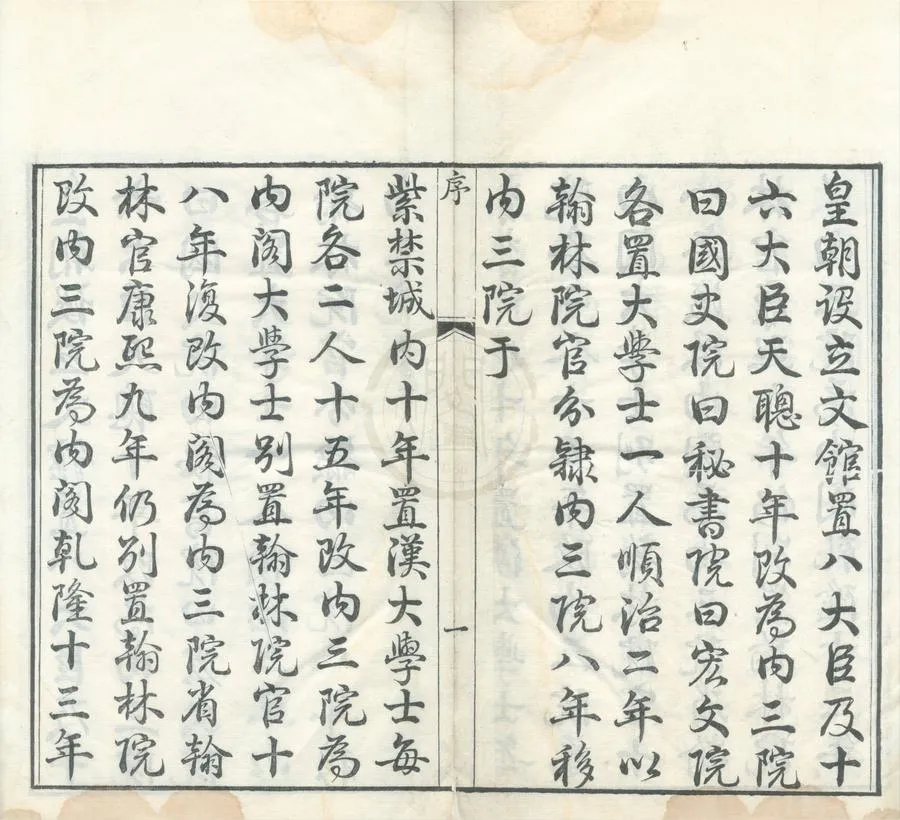 皇朝设立文館置八大臣及十
六大臣天聰十年改為内三院
曰國史院曰秘書院曰宏文院
各置大學士一人順治二年以
翰林院官分隸内三院八年移
内三院于
序
一
紫禁城内十年置漢大學士每
院各二人十五年改内三院為
内閣大學士别置翰林院官十
八年復改内閣為内三院省翰
林官康熙九年仍别置翰林院
改内三院為内閣乾隆十三年